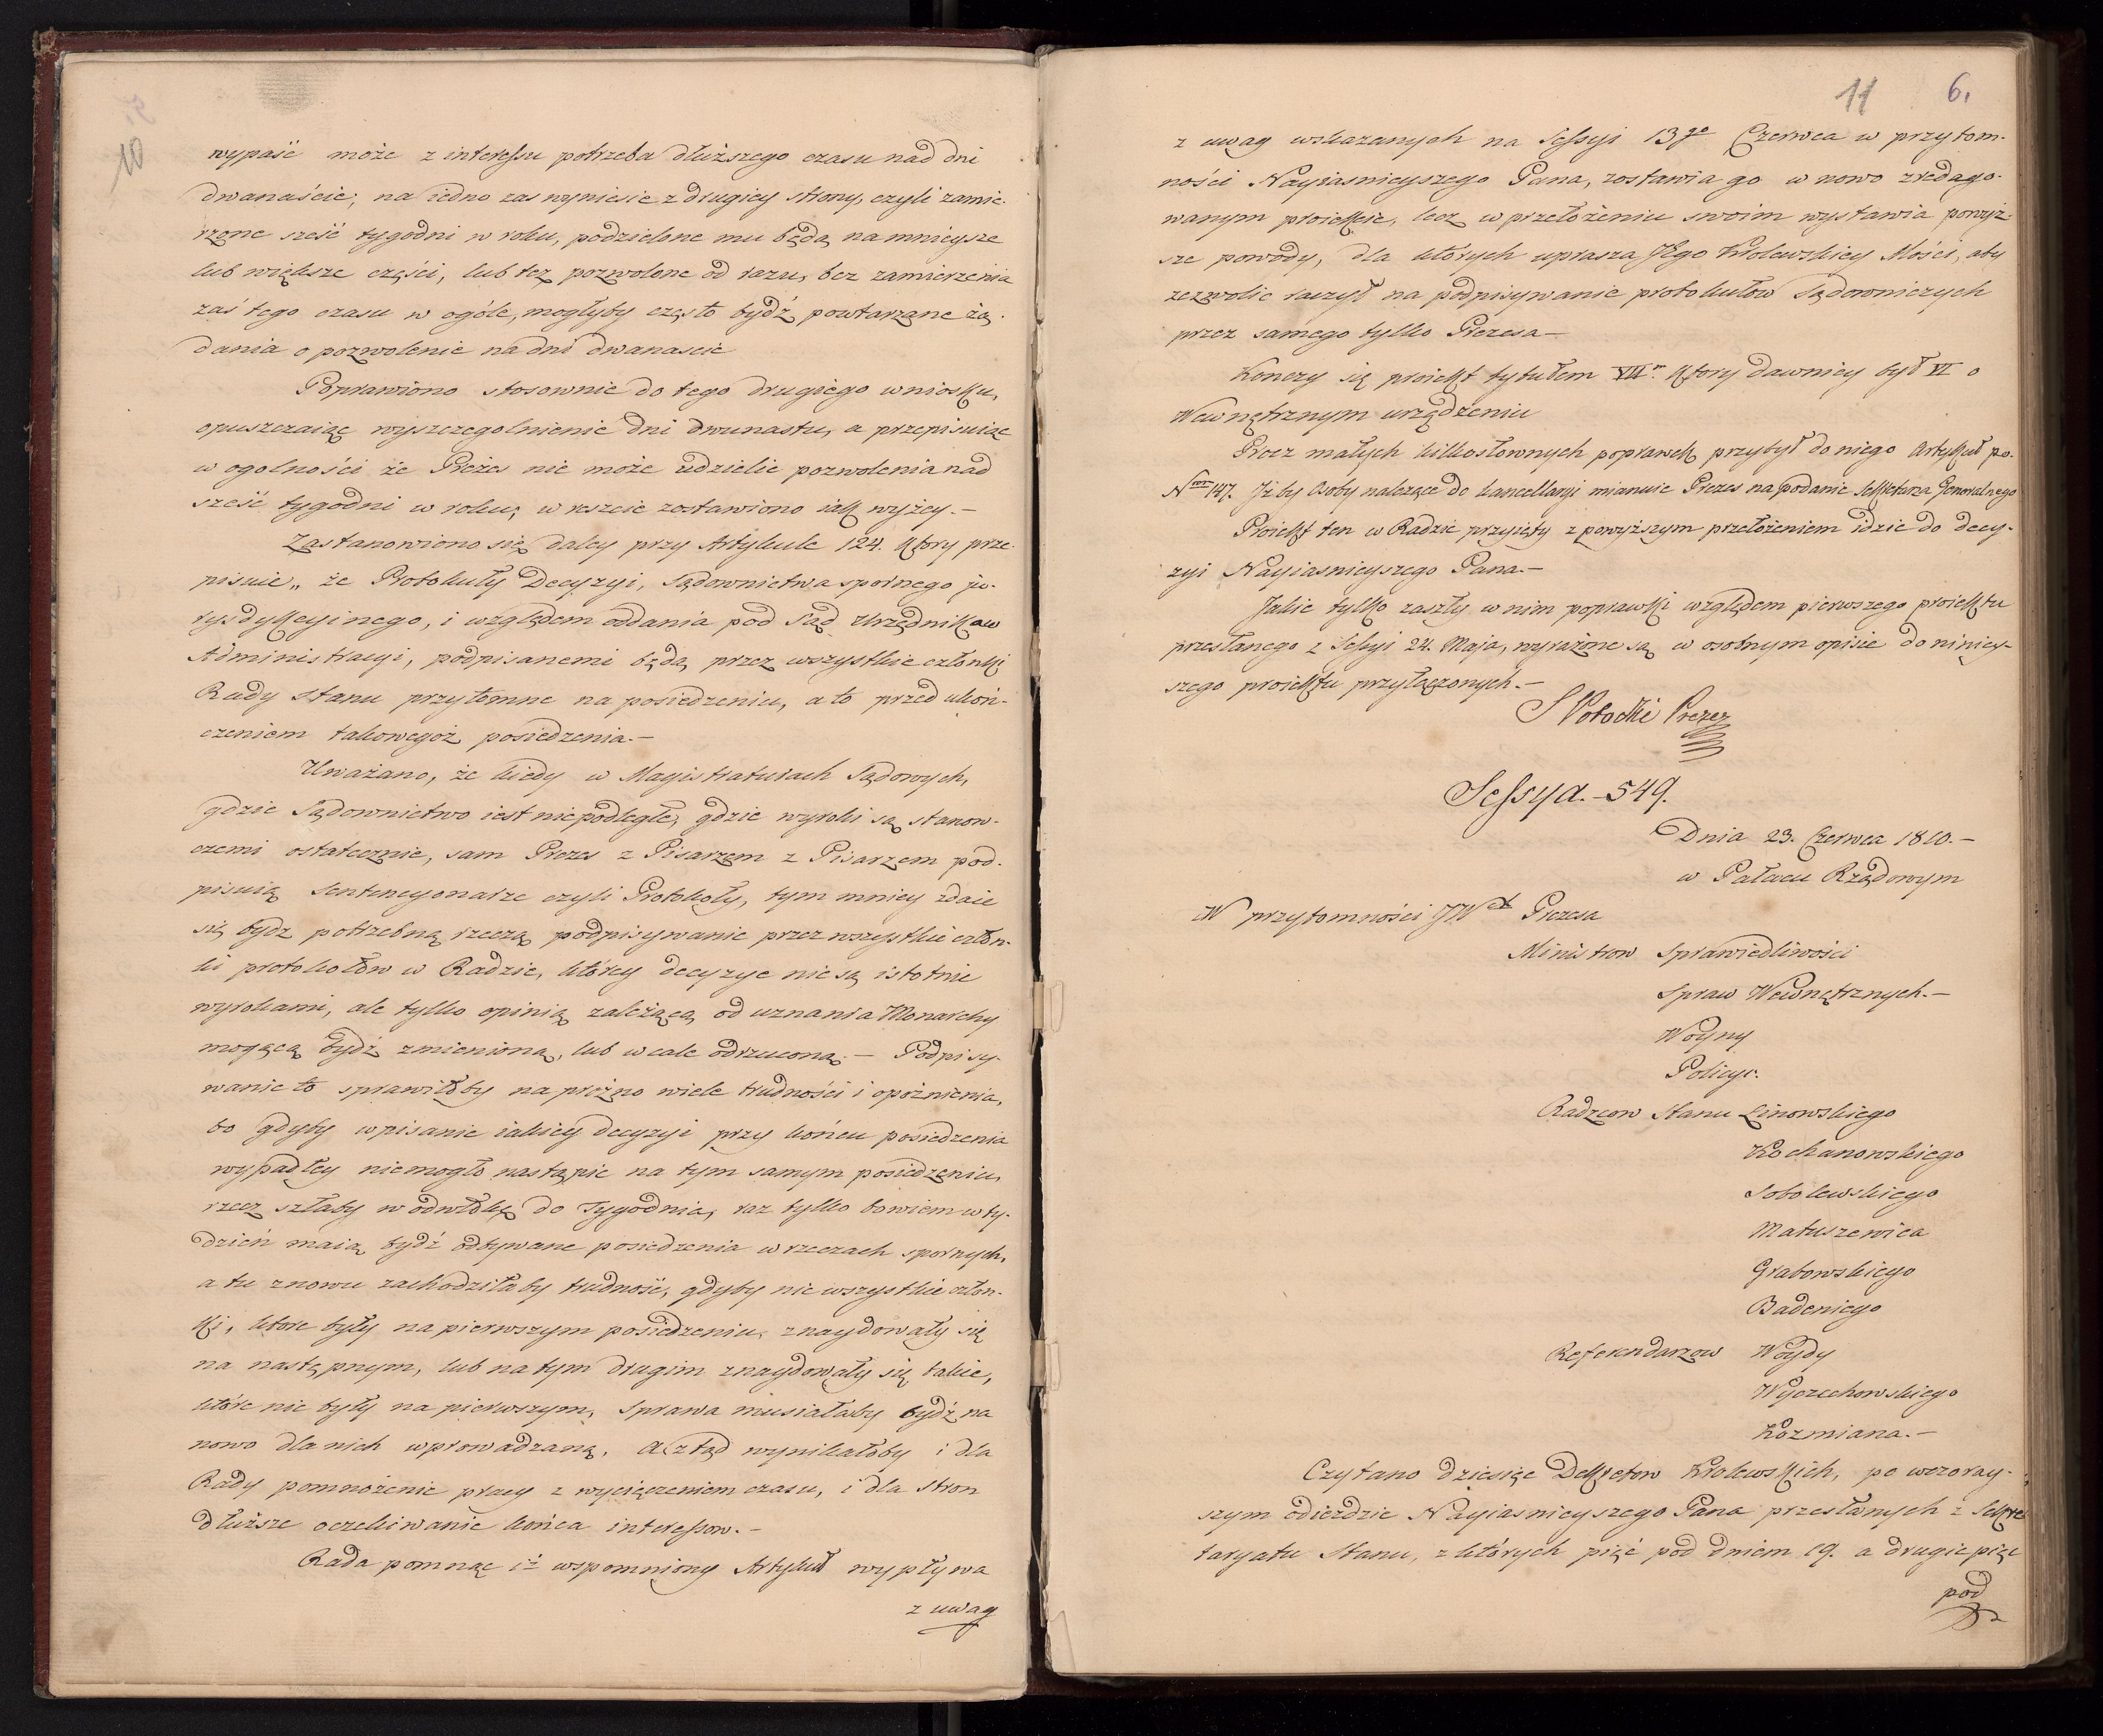 10
wypaść może z interessu potrzeba dłuższego czasu nad dni
dwanaście; na iedno zas wyniesie z drugiey strony, czyli zamie-
rzone sześć tygodni w roku, podzielone mu będą na mnieysze
lub większe części, lub też pozwolone od razu, bez zamierzenia
zaś tego czasu w ogóle, mogłyby często bydź powtarzane żą-
dania o pozwolenie na dni dwanascie
Poprawiono stosownie do tego drugiego wniosku,
opuszczaiąc wyszczegolnienie dni dwunastu, a przepisuiąc
w ogolności że Prezes nie może udzielic pozwolenia nad
sześć tygodni w roku; w reszcie zostawiono iak wyżey.–
Zastanowiono się daley przy Artykule 124. ktory prze-
pisuie „ że Protokuły Decyzyi, sądownictwa spornego ju-
rysdykcyinego, i względem oddania pod Sąd Urzędnikow
Administracyi, podpisanemi będą przez wszystkie członki
Rady Stanu przytomne na posiedzeniu, a to przed ukoń-
czeniem takowegoż posiedzenia.–
Uważano, że kiedy w Magistraturach Sądowych,
gdzie Sądownictwo iest niepodległe, gdzie wyroki są stanow-
czemi ostatecznie, sam Prezes z Pisarzem z Pisarzem pod-
pisuią Sentencyonarze czyli Protokoły, tym mniey zdaie
się bydz potrzebną rzeczą podpisywanie przez wszystkie człon-
ki protokołów w Radzie, którey decyzye nie są istotnie
wyrokami, ale tylko opinią zależącą od uznania Monarchy
mogącą bydź zmienioną, lub wcale odrzuconą.– Podpisy-
wanie to sprawiłoby na prożno wiele trudności i opoźnienia,
bo gdyby wpisanie iakiey decyzyi przy końcu posiedzenia
wypadłey niemogło nastąpić na tym samym posiedzeniu,
rzecz szłaby w odwłokę do Tygodnia, raz tylko bowiem w ty-
dzień maią bydź odbywane posiedzenia w rzeczach spornych,
a tu znowu zachodziłaby trudność, gdyby nie wszystkie człon-
ki, które były na pierwszym posiedzeniu, znaydowały się
na następnym, lub na tym drugim znaydowały się takie,
które nie były na pierwszym, sprawa musiałaby bydź na
nowo dla nich wprowadzaną, a ztąd wynikałoby i dla
Rady pomnożenie pracy z wycięczeniem czasu, i dla stron
dłuższe oczekiwanie końca interessow.–
Rada pomnąc iż wspomniony Artykuł wypływa
z uwag
11 6.
z uwag wskazanych na Sessyi 13go Czerwca w przytom-
ności Nayiasnieyszego Pana, zostawia go w nowo zredago-
wanym proiekcie, lecz w przełożeniu swoim wystawia powyż-
sze powody, dla których uprasza Jego Krolewskiey Mości, aby
zezwolic raczył na podpisywanie protokułow Sądowniczych
przez samego tylko Prezesa–
Konczy się proiekt tytułem VIIm. ktory dawniey był VI o
Wewnętrznym urządzeniu
Procz małych kilkosłownych poprawek przybył do niego Artykuł po-
Nrm 147. Jż by Osoby należące do kancellaryi mianuie Prezes na podanie Sekretarza Generalnego
Proiekt ten w Radzie przyięty z powyższym przełożeniem idzie do decy-
zyi Nayiasnieyszego Pana.–
Jakie tylko zaszły w nim poprawki względem pierwszego proiektu
przesłanego z Sessyi 24. Maja, wyrażone są w osobnym opisie do niniey-
szego proiektu przyłączonych.–
S Potocki Prezes
Sessya.–549.
Dnia 23. Czerwca 1810.–
w Pałacu Rządowym
W przytomności JW Prezesa
Ministrow Sprawiedliwości
Spraw Wewnętrznych.–
Woyny
Policyi.
Radzcow Stanu Linowskiego
Kochanowskiego
Sobolewskiego
Matuszewica
Grabowskiego
Badeniego
Referendarzow Woydy
Wyczechowskiego
Kozmiana.–
Czytano dziesięc Dekretow Krolewskich, po wczoray-
szym odieździe Nayiasnieyszego Pana przesłanych z Sekre
taryatu Stanu, z których pięć pod dniem 19. a drugie pięc
pod